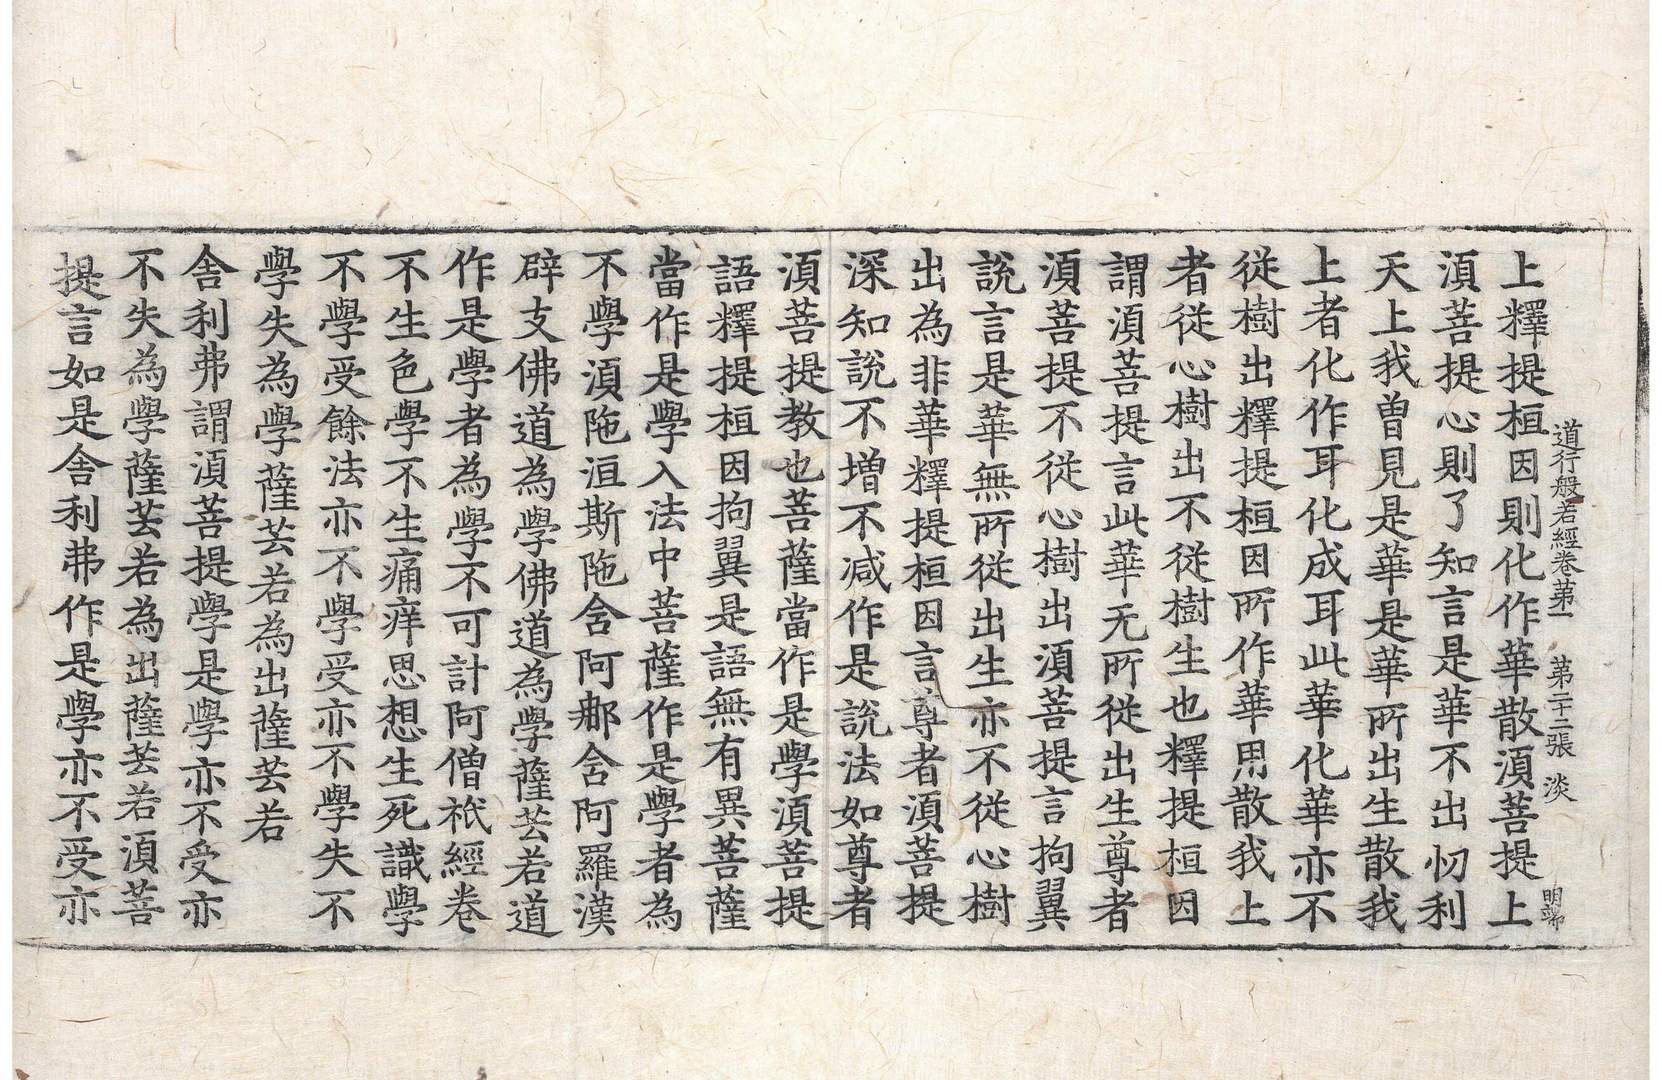 道行般若經卷第一　第二十二張　淡
上釋提桓因則化作華散湏菩提上
湏菩提心則了知言是華不出忉利
天上我曾見是華是華所出生散我
上者化作耳化成耳此華化華亦不
從樹出釋提桓因所作華用散我上
者從心樹出不從樹生也釋提桓因
謂湏菩提言此華无所從出生尊者
湏菩提不從心樹出湏菩提言拘翼
說言是華無所從出生亦不從心樹
出為非華釋提桓因言尊者湏菩提
深知說不增不减作是說法如尊者
湏菩提教也菩薩當作是學湏菩提
語釋提桓因拘翼是語無有異菩薩
當作是學入法中菩薩作是學者為
不學湏陁洹斯陁含阿那含阿羅漢
辟支佛道為學佛道為學薩芸若道
作是學者為學不可計阿僧祇經卷
不生色學不生痛痒思想生死識學
不學受餘法亦不學受亦不學失不
學失為學薩芸若為出薩芸若
舍利弗謂湏菩提學是學亦不受亦
不失為學薩芸若為出薩芸若湏菩
提言如是舍利弗作是學亦不受亦